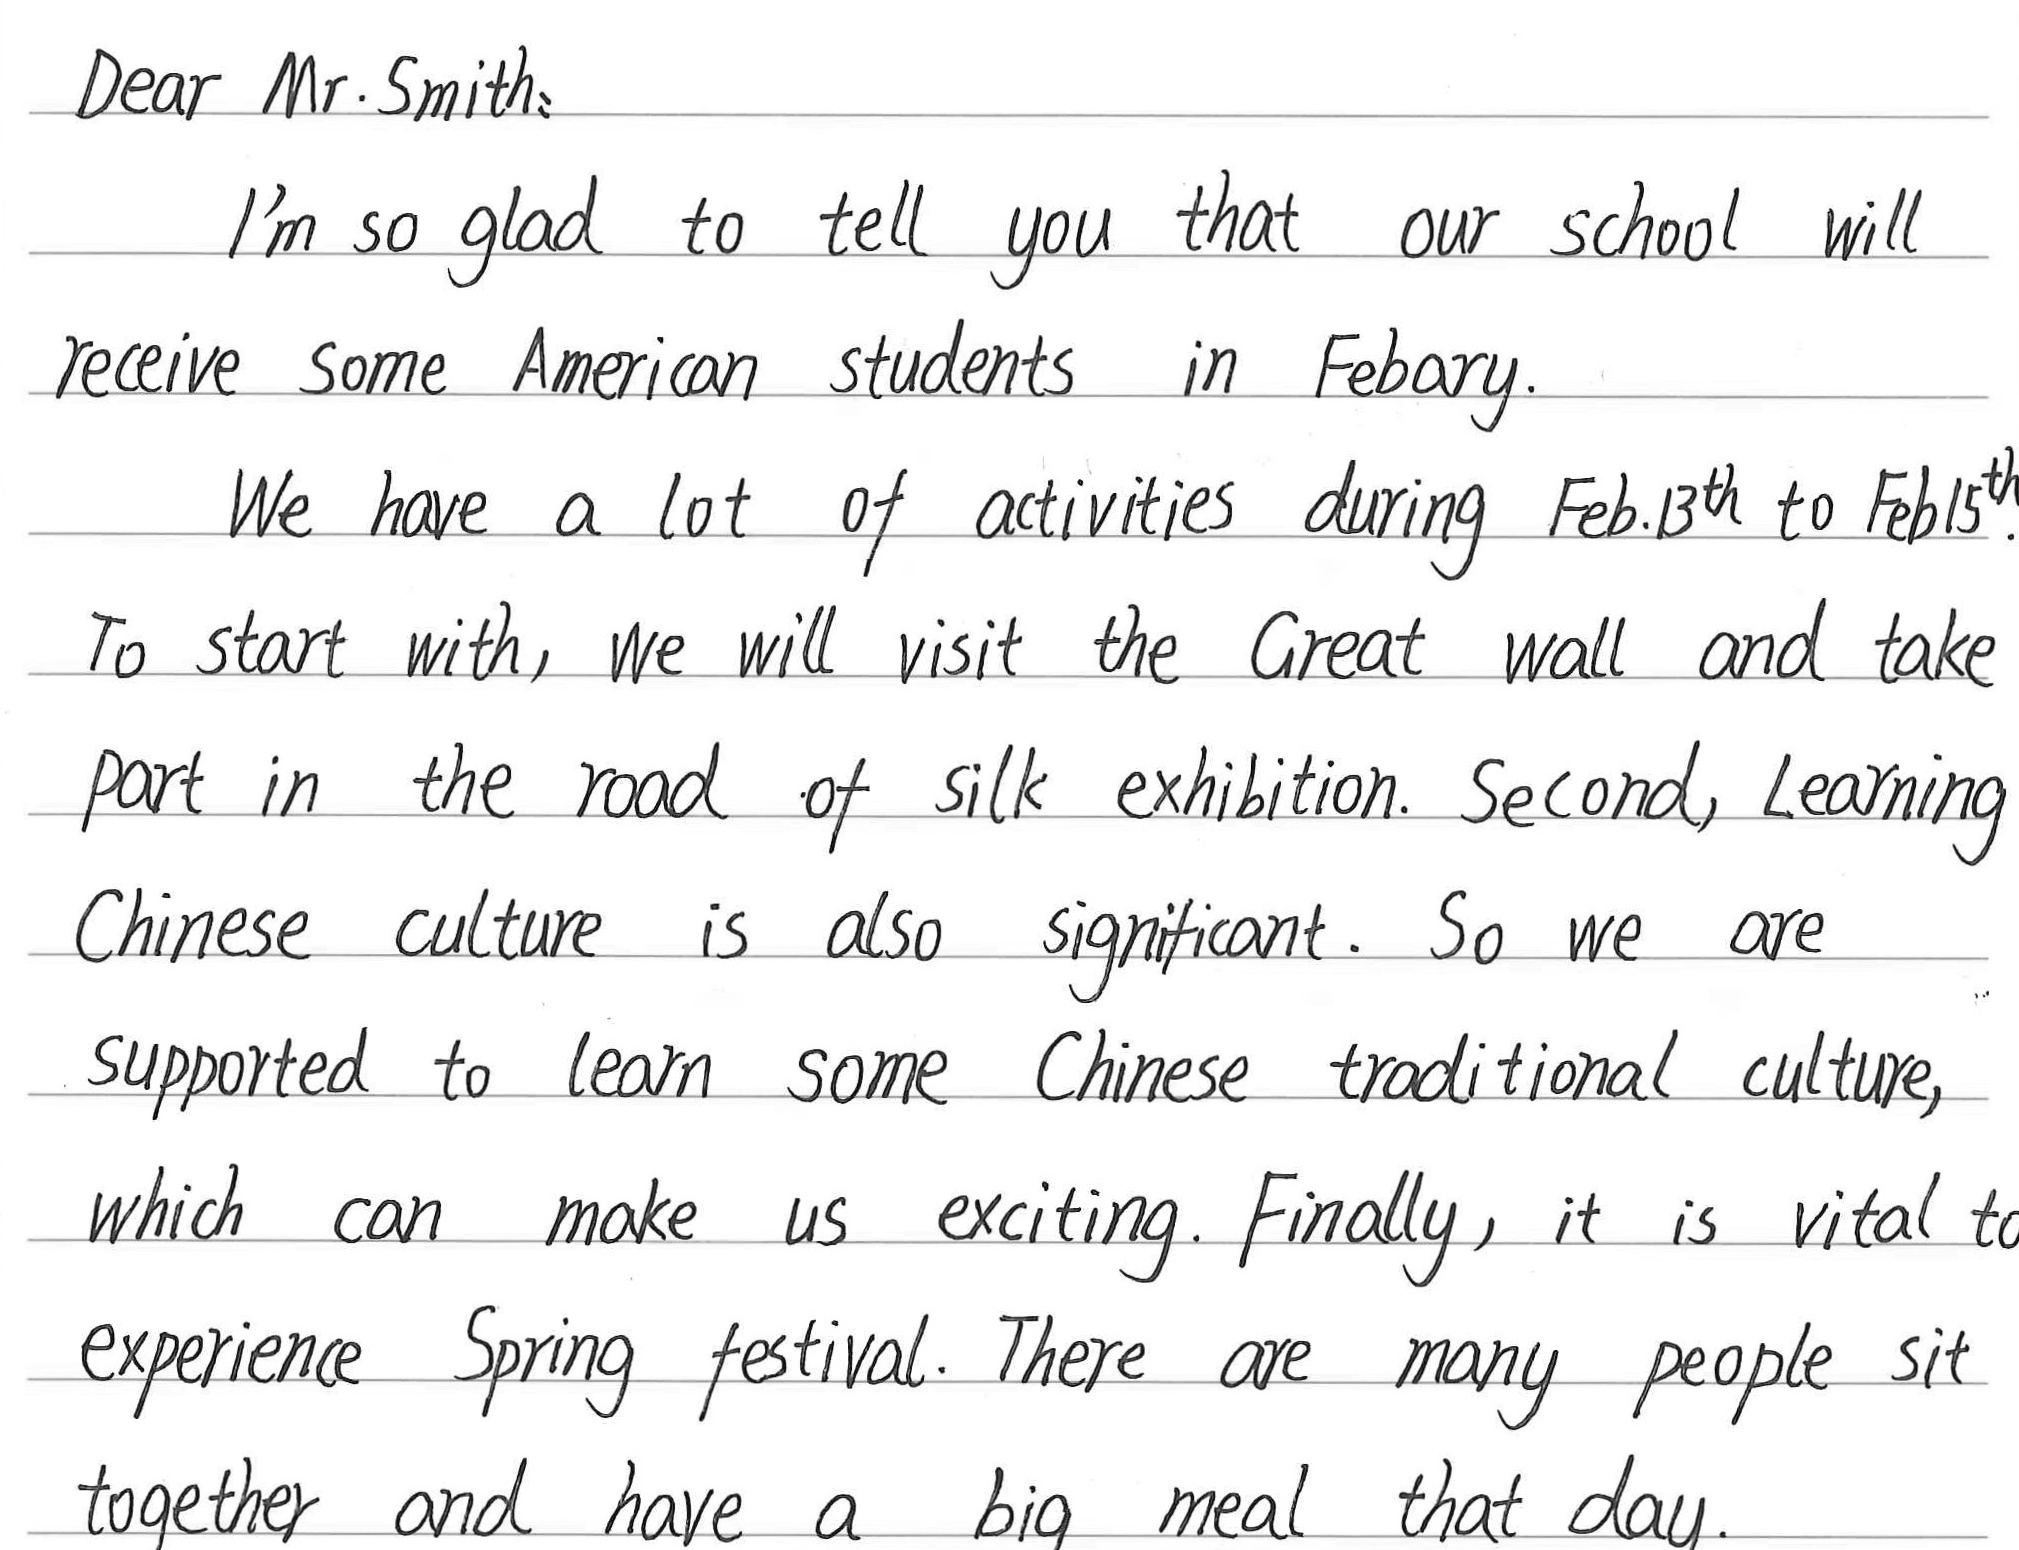 Dear Mr. Smith:
I'm so glad to tell you that our school will
receive some American students in Febary.
We have a lot of activities during Feb.13th to Feb15th.
To start with, we will visit the Great wall and take
part in the road of silk exhibition. Second, Learning
Chinese culture is also significant. So we are
supported to learn some Chinese traditional culture,
which can make us exciting. Finally, it is vital to
experience Spring festival. There are many people sit
together and have a big meal that day.